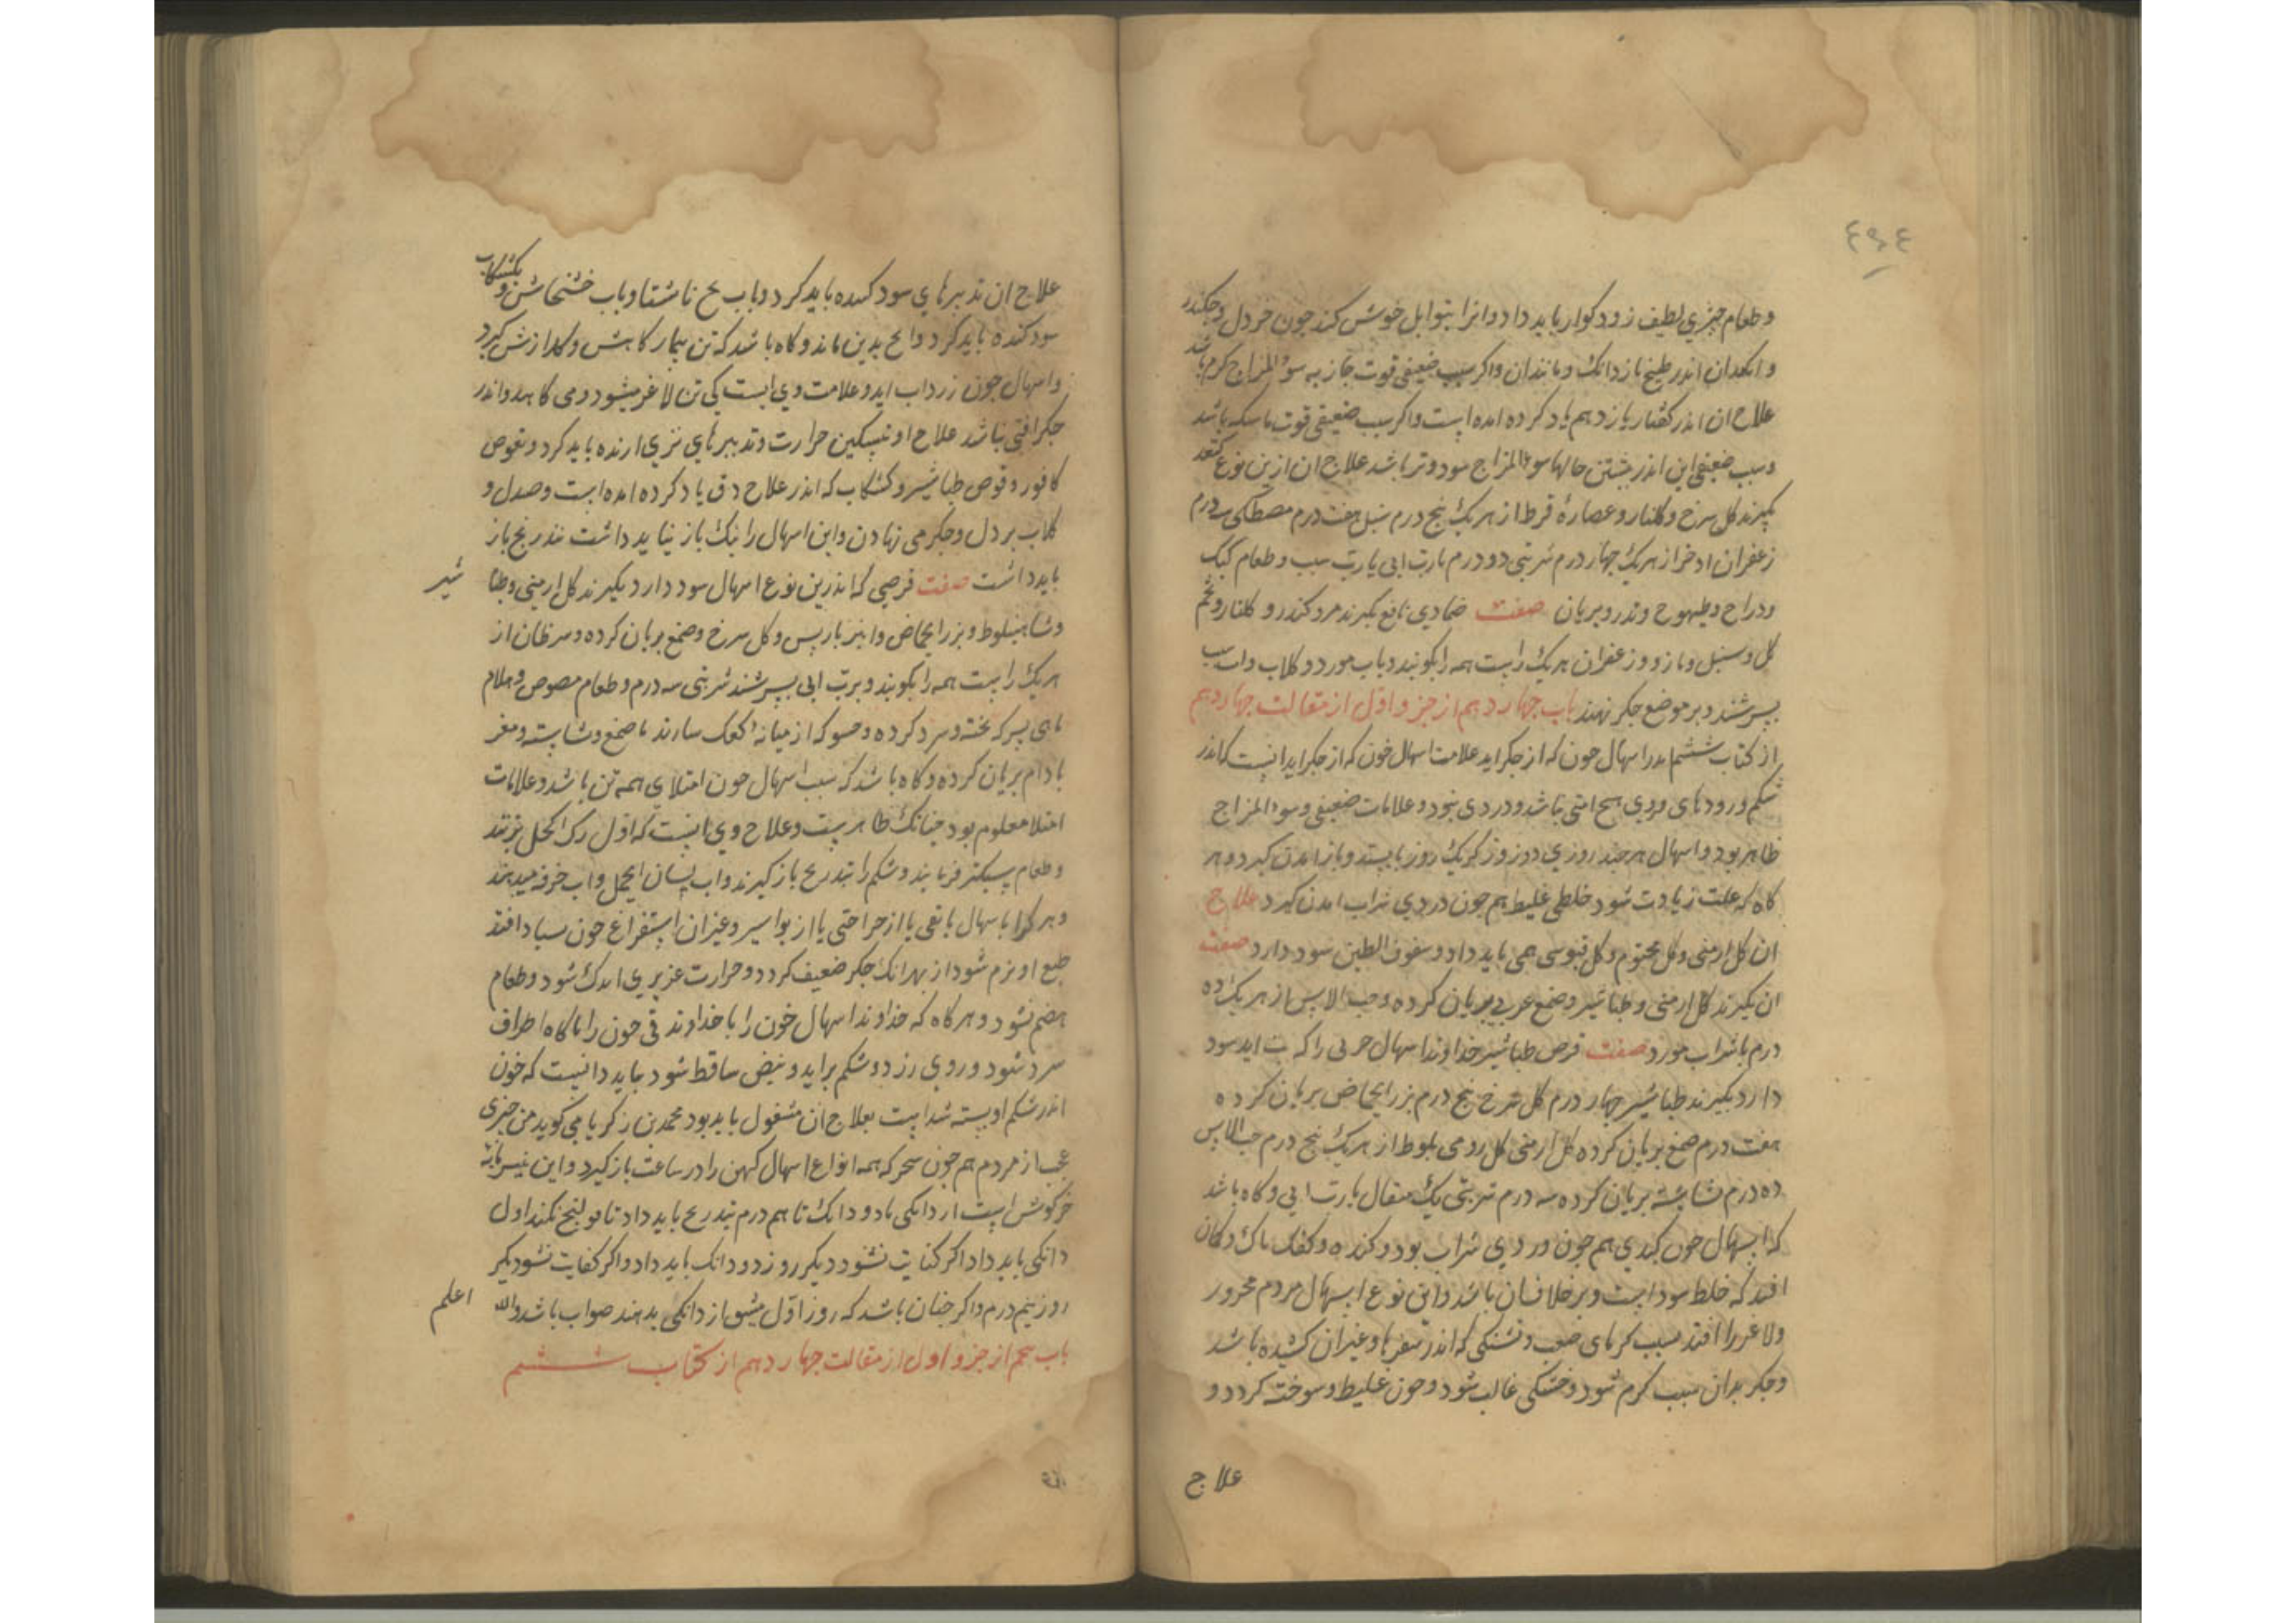 ٤٩٤
وطعام چیزی لطیف زود کوار باید داد وانرا بتوابل خوش کند جون خردل وجکندر
وانکدان اندر طبخ نازدانک ومانندان واکر سبب ضعیفی قوت جاذبه سوء المزاج کرم باشد
علاج ان اندر کفتار یازدهم یاد کرده امده است واکر سبب ضعیفی قوت ماسکه باشد
وسبب ضعیفی این اندر بیشتن حالها سوء المزاج سود وتر باشد علاج ان ازین نوع کنند
بکیرند کل سرخ وکلنار وعصارهٔ قرط از هر یک پنج درم سنبل هفت درم مصطکی سه درم
زعفران اذخر از هر یک جهار درم شربتی دو درم بارب ابی یا رب سیب وطعام کبک
ودراج وطیهوج وتدرو بریان صفت ضمادی نافع بکیرند مرد وکندر و کلنار وتخم
کل وسنبل ومازو وزعفران هر یک راست همه را بکوبند وباب مورد وکلاب واب سیب
بسرشند وبر موضع جکر نهند باب جهاردهم از جزو اول از مقالت جهاردهم
از کتاب ششم اندر اسهال خون که از جکر اید علامت اسهال خون که از جکر اید انیست که اندر
شکم ورودهای وی هیچ افتی نباشد ودردی نبود وعلامات ضعیفی وسوء المزاج
ظاهر بود واسهال هر جند روزی دو زور کریک روز بایستد وباز امدن کیرد وهر
کاه که علت زیادت شود خلطی غلیظ هم جون دردی شراب امدن کیرد علاج
ان کل ارمنی وکل مختوم وکل قبرسی همی باید داد وسفوف الطین سود دارد صفت
ان بکیرند کل ارمنی وطباشیر وصمغ عربی بریان کرده وحب الاس از هر یک ده
درم باشراب مورد صفت قرص طباشیر خداوند اسهال خونی را که تب اید سود
دارد بکیرند طباشیر جهار درم کل سرخ پنج درم بزر الحماض بریان کرده
هفت درم صمغ بریان کرده کل ارمنی کل رومی بلوط از هر یک پنج درم حب الاس
ده درم نشاسته بریان کرده سه درم شربتی یک مثقال بارب ابی وکاه باشد
که اسهال خون کبدی هم جون دردی شراب بود وکنده وکفک ناک وکمان
افتد که خلط سودا است وبر خلاف ان باشد واین نوع اسهال مردم محرور
ولاغر را افتد بسبب کرمای صعب وتشنکی که اندر سفرها وغیر ان کشیده باشد
وجکر بدان سبب کرم شود وخشکی غالب شود وخون غلیظ وسوخته کردد و
علاج
علاج ان تدبیرهای سود کننده باید کرد وباب یخ ناشتا وباب خشخاش وبکشکاب
سود کننده باید کرد وانج بدین ماند وکاه باشد که تن بیمار کاهش وکدازش کیرد
واسهال جون زرداب اید وعلامت وی انست کی تن لاغر میشود ومی کاهد واندر
جکر افتی نباشد علاج او تسکین حرارت وتدبیرهای تری ارنده باید کرد وبقرص
کافور وقرص طباشیر وکشکاب که اندر علاج دق یاد کرده امده است وصندل و
کلاب بر دل وجکر می نهادن واین اسهال را نیک باز نباید داشت بتدریج باز
باید داشت صفت قرصی که اندرین نوع اسهال سود دارد بکیرند کل ارمنی وطبا شیر
وشاهبلوط وبزر الحماض وانبرباریس وکل سرخ وصمغ بریان کرده وسرطان از
هر یک راست همه را بکوبند وبرب ابی بسرشند شربتی سه درم وطعام مصوص وهلام
ماهی بسرکه بخته وسرد کرده وحسو که از میانهٔ کعک سازند با صمغ ونشاسته ومغز
بادام بریان کرده وکاه باشد که سبب اسهال خون امتلای همه تن باشد وعلامات
امتلا معلوم بود جنانک ظاهرست وعلاج وی انست که اول رک اکحل بزنند
وطعام سبکتر فرمایند وشکم را بتدریج باز کیرند واب لسان الحمل واب خرفه میدهند
وهر کرا باسهال یا بقی یا از جراحتی یا از بواسیر وغیر ان استفراغ خون بسیار افتد
طبع او نرم شود از بهر انک جکر ضعیف کردد وحرارت غریزی اندک شود وطعام
هضم نشود وهر کاه که خداوند اسهال خون را یا خداوند قی خون را ناکاه اطراف
سرد شود وروی زرد وشکم براید ونبض ساقط شود بباید دانیست که خون
اندر شکم او بسته شداست بعلاج ان مشغول باید بود محمد بن زکریا می کوید من جیزی
عجب از مردم هم جون سحر که همه انواع اسهال کهن را در ساعت باز کیرد واین پنیر مایهٔ
خرکوش است از دانکی تا دو دانک تا هم درم بتدریج باید داد تا قولنج نکند اول
دانکی باید داد اکر کفایت نشود دیکر روز دو دانک باید داد واکر کفایت نشود دیکر
روز نیم درم واکر جنان باشد که روز اول میش از دانکی بدهند صواب باشد والله اعلم
باب پنجم از جزو اول از مقالت جهاردهم از کتاب ششم